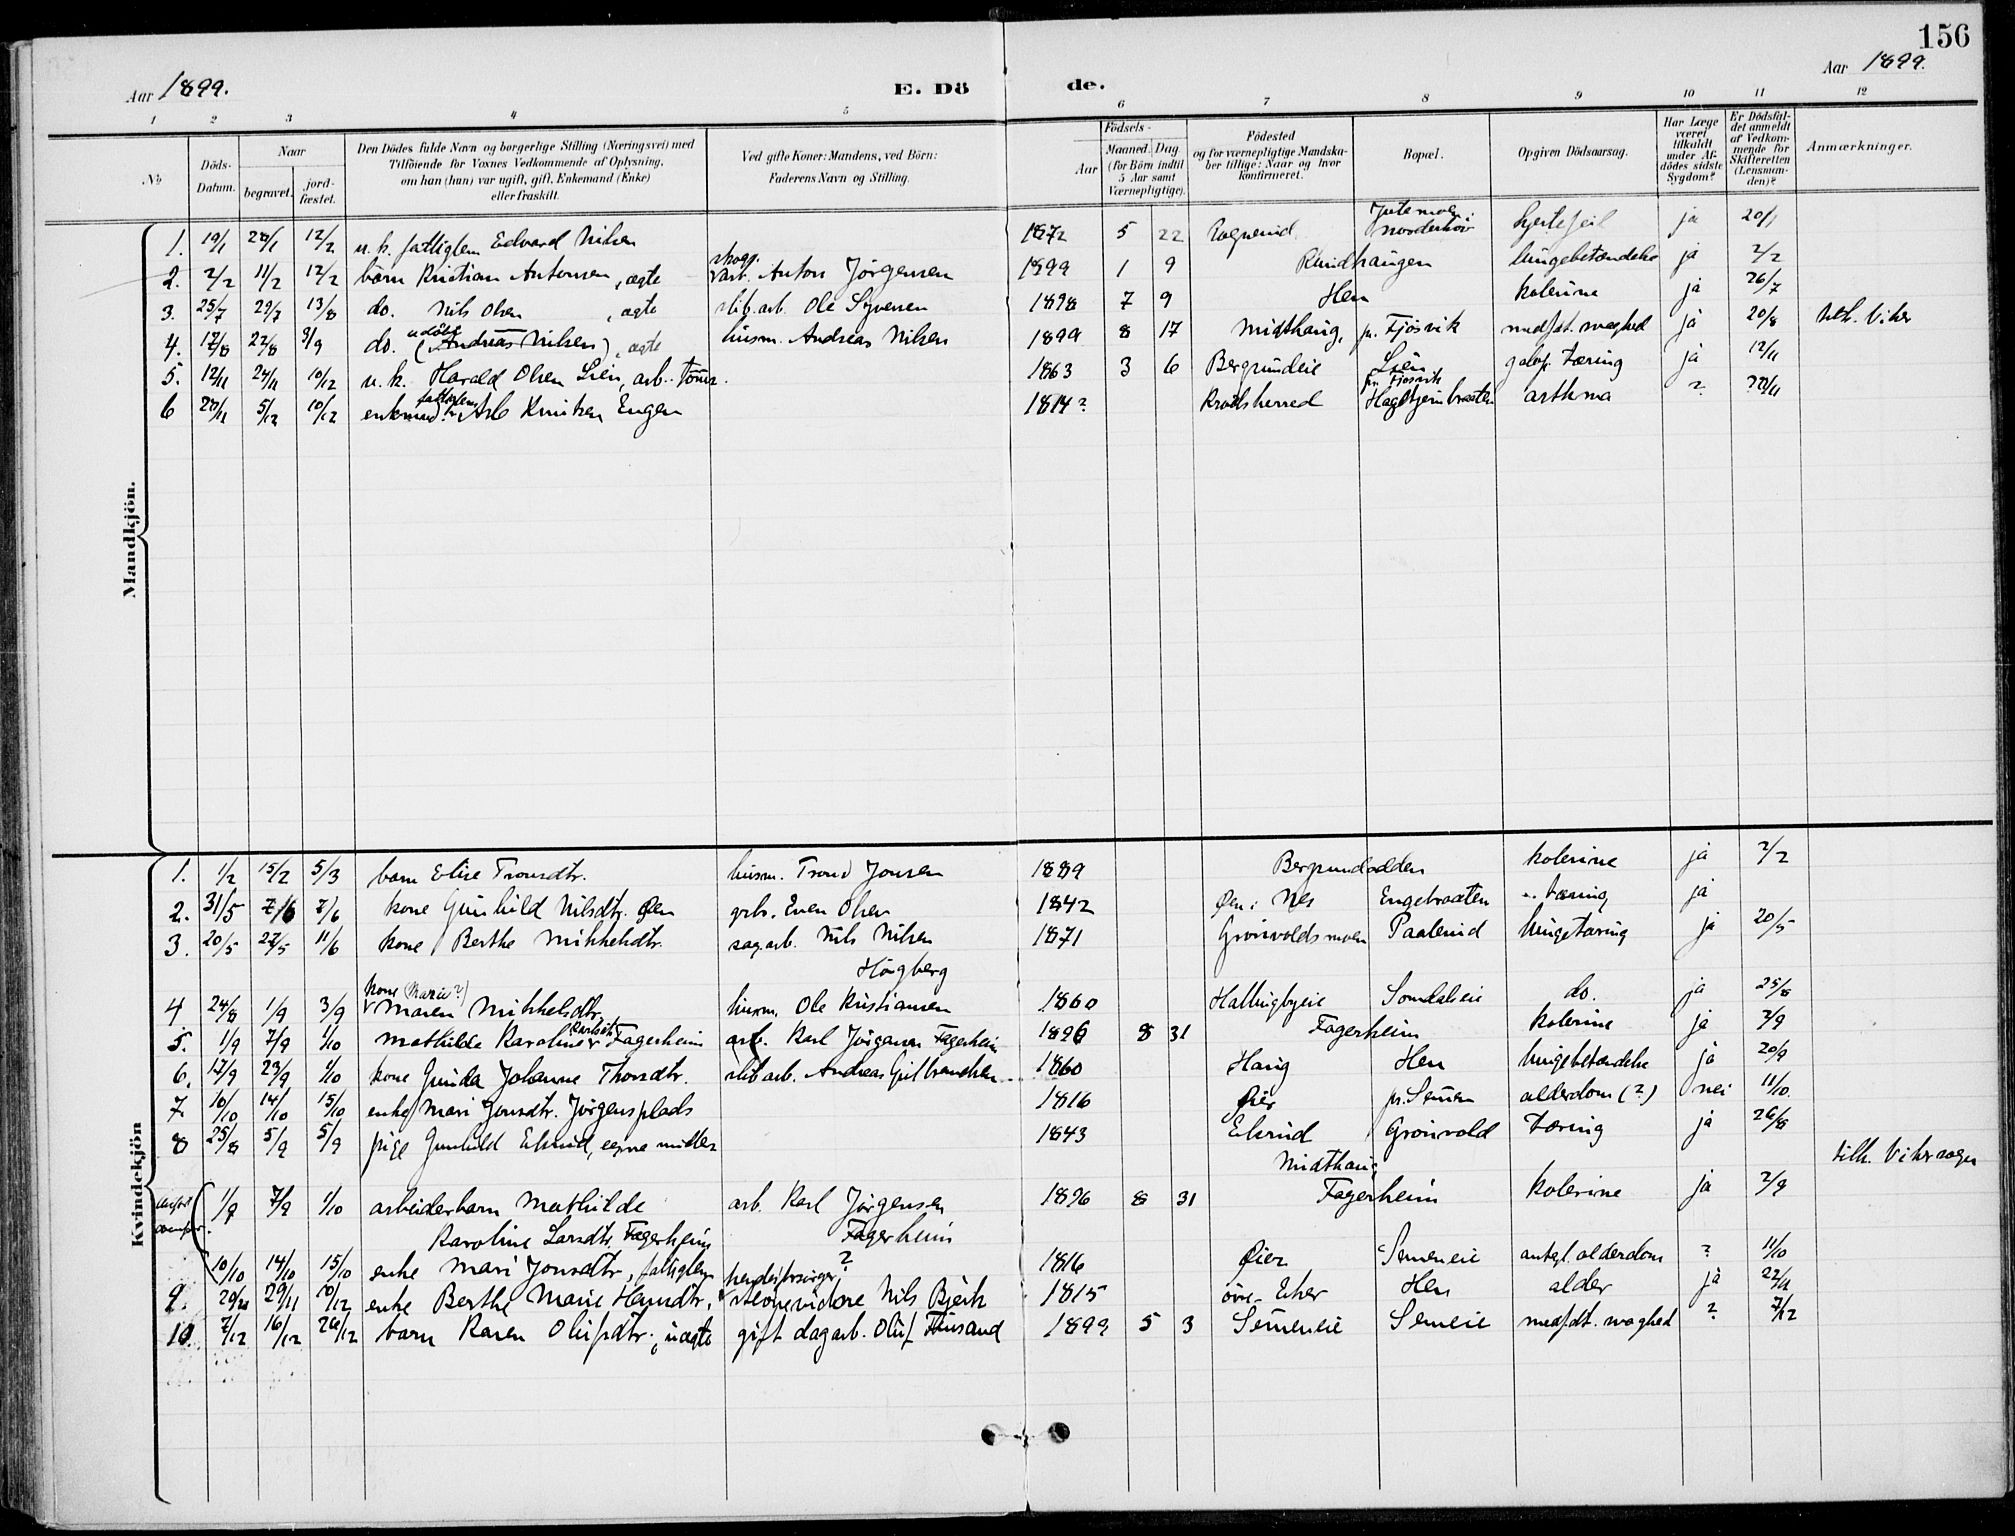 156
Aar 1899.
E. Dö de.
Aar 1899.
1 2 3 4 5 6 7 8 9 10 11 12
No
Döds-Datum.
Naar
begravet.
jord-fæstet.
Den Dödes fulde Navn og borgerlige Stilling (Næringsvei) med
Tilföiende for Voxnes Vedkommende af Oplysning,
om han (hun) var ugift, gift, Enkemand (Enke)
eller fraskilt.
Ved gifte Koner: Mandens, ved Börn:
Faderens Navn og Stilling.
Födsels-
Aar
Maaned. Dag
(for Börn indtil
5 Aar samt
Værnepligtige).
Födested
og for værnepligtige Mandska-
ber tillige: Naar og hvor
konfirmeret.
Bopæl.
Opgiven Dödsaarsag.
Har Læge
været
tilkaldt
under Af-
dödes sidste
Sygdom?
Er Dödsfal-
det anmeldt
af Vedkom-
mende for
Skifteretten
(Lensman-
den)?
Anmærkninger.
Mandkjön.
1. 19/1 28/1 12/2 u.k. fattiglem Edvard Nilsen 1872 5 22 Norderhov hjertefeil ja 20/1
2. 2/2 11/2 12/2 barn Kristian Antonsen, ægte skogs. arb. Anton Jörgensen 1899 1 9 Rundhaugen lungebetændelse ja 2/2
3. 25/7 29/7 13/8 do. Nils Olsen, ægte slib.arb. Ole Syversen 1898 7 9 Hen kolerine ja 26/7
4. 17/8 22/8 3/9 do. udöbt (Andreas Nilsen), ægte husm. Andreas Nilsen 1899 8 17 Midthaug, pr. Fjösvik medfdt. svaghed ja 20/8 tilh. Viker
5. 12/11 24/11 10/12 u.k. Harald Olsen Lien, arb. tömr. 1863 3 6 Bergsundeie Lien pr. Fjösvik galop. tæring ja 12/11
6 28/11 5/12 10/12 enkmand fattiglem Asle Knutsen Engen 1814? Krödsherred Hagltjernbraaten asthma ? 28/11
Kvindekjön
1. 1/2 15/2 5/3 barn Elise Tronsdtr. husm. Trond Jonsen 1889 Bergsundodden kolerine ja 2/2
2. 31/5 7/6 7/6 kone Gunhild Nilsdtr. Öen grbr. Even Olsen 1842 Öen i Nes Engebraaten tæring ja
3. 20/5 27/5 11/6 kone Berthe Mikkelsdtr. sagarb. Nils Nilsen Högberg 1871 Grönvoldsmoen Paalerud lungetæring ja 20/5
4 24/8 1/9 3/9 kone (Marie?) Maren Mikkelsdtr. husm. Ole Kristiansen 1860 Hallingbyeie Somdaleie do. ja 25/8
5. 1/9 7/9 1/10 Mathilde Karoline Karlsdtr. Fagerheim arb. Karl Jörgensen Fagerheim 1896 8 31 Fagerheim kolerine ja 2/9
6. 17/9 23/9 1/10 kone Gunda Johanne Thorsdtr. slib arb. Andreas Gulbrandsen 1860 Haug Hen lungebetændelse ja 20/9
7. 10/10 14/10 15/10 enke Mari Jonsdtr. Jörgensplads 1816 Öier pr. Semen alderdom (?) nei 11/10
8 25/8 5/9 5/9 pige Gunhild Elsrud, egne midler 1843 Elsrud Grönvold tæring ja 26/8
Midthaug tilh. Viker sogn
1/9 7/9 1/10 arbeiderbarn Mathilde arb. Karl Jörgensen 1896 8 31 Fagerheim kolerine ja 2/9
Karoline Larsdtr. Fagerheim Fagerheim
10/10 14/10 15/10 enke Mari Jonsdtr, fattiglem ? 1816 Öier Semeneie antgl. alderdom ? 11/10
9. 20/11 29/11 10/12 enke Berthe Marie Hansdtr. hendes forsörger Nils Bjerk 1815 övre Eker Hen alder ja 22/11
10. 2/12 16/12 26/12 barn Karen Olufsdtr. uægte gift dagarb. Oluf Finsand 1899 5 3 Semeneie Semeie medfdt. svaghed ? 7/12